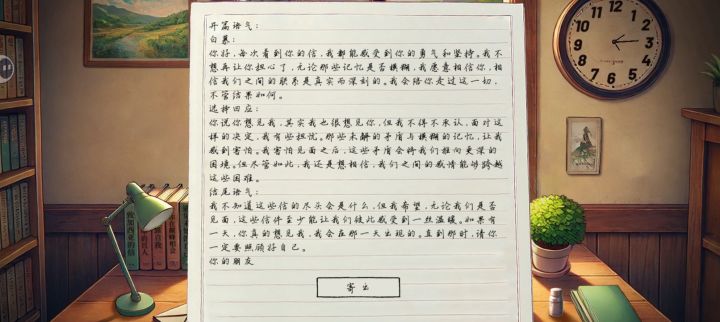 开篇语气：
白慕：
你好，每次看到你的信，我都能感受到你的勇气和坚持。我不
想再让你担心了，无论那些记忆是否模糊，我愿意相信你，相
信我们之间的联系是真实而深刻的。我会陪你走过这一切，
不管结果如何。
选择回应：
你说你想见我，其实我也很想见你，但我不得不承认，面对这
样的决定，我有些担忧。那些未解的矛盾与模糊的记忆，让我
感到害怕。我害怕见面之后，这些矛盾会将我们推向更深的
困境。但尽管如此，我还是想相信，我们之间的感情能够跨越
这些困难。
结尾语气：
我不知道这些信的尽头会是什么，但我希望，无论我们是否
见面，这些信件至少能让我们彼此感受到一丝温暖。如果有
一天，你真的想见我，我会在那一天出现的。直到那时，请你
一定要照顾好自己。
你的朋友
寄出
12
1
2
3
4
5
6
7
8
9
10
11